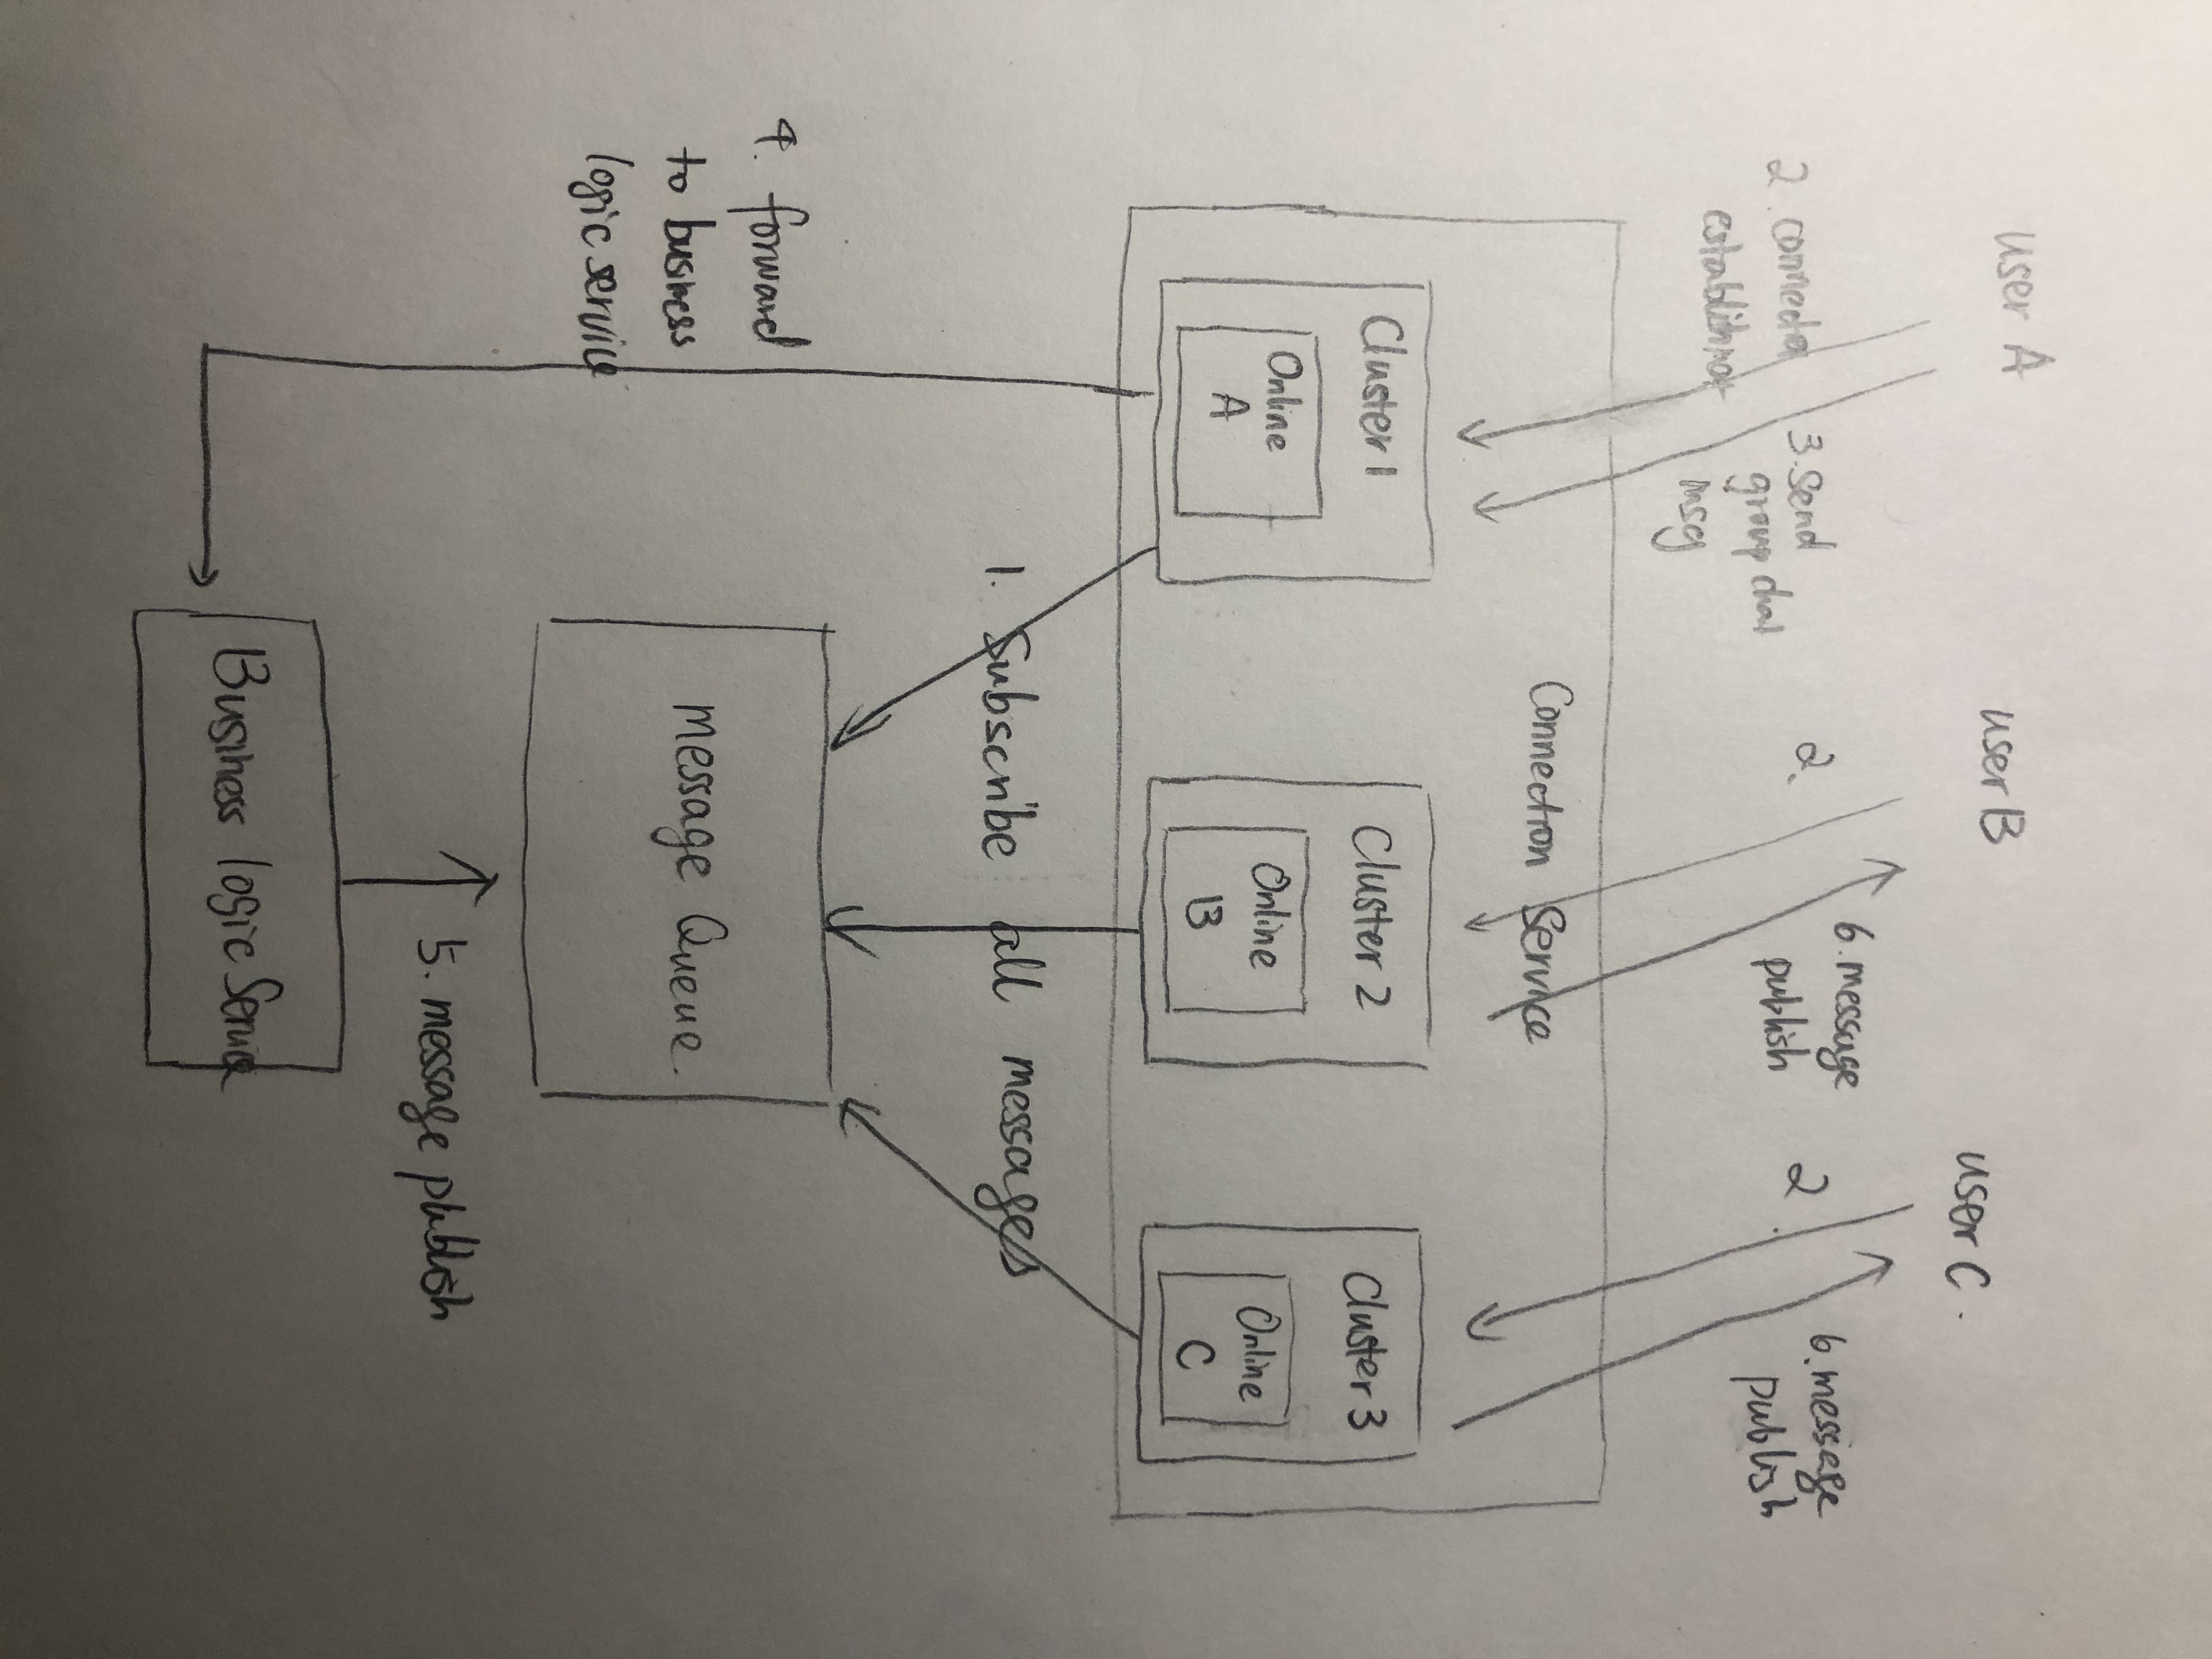 user A
user B
user C.
2. connecton
establithmat
3. Send
group chat
msg
2.
6. message
publish
2.
6. message
publish
Connection Service
Cluster 1
Online
A
Cluster 2
Online
B
Cluster 3
Online
C
1. Subscribe all messages
4. forward
to business
logic service
Message Queue.
5. message publish
Business logic Service